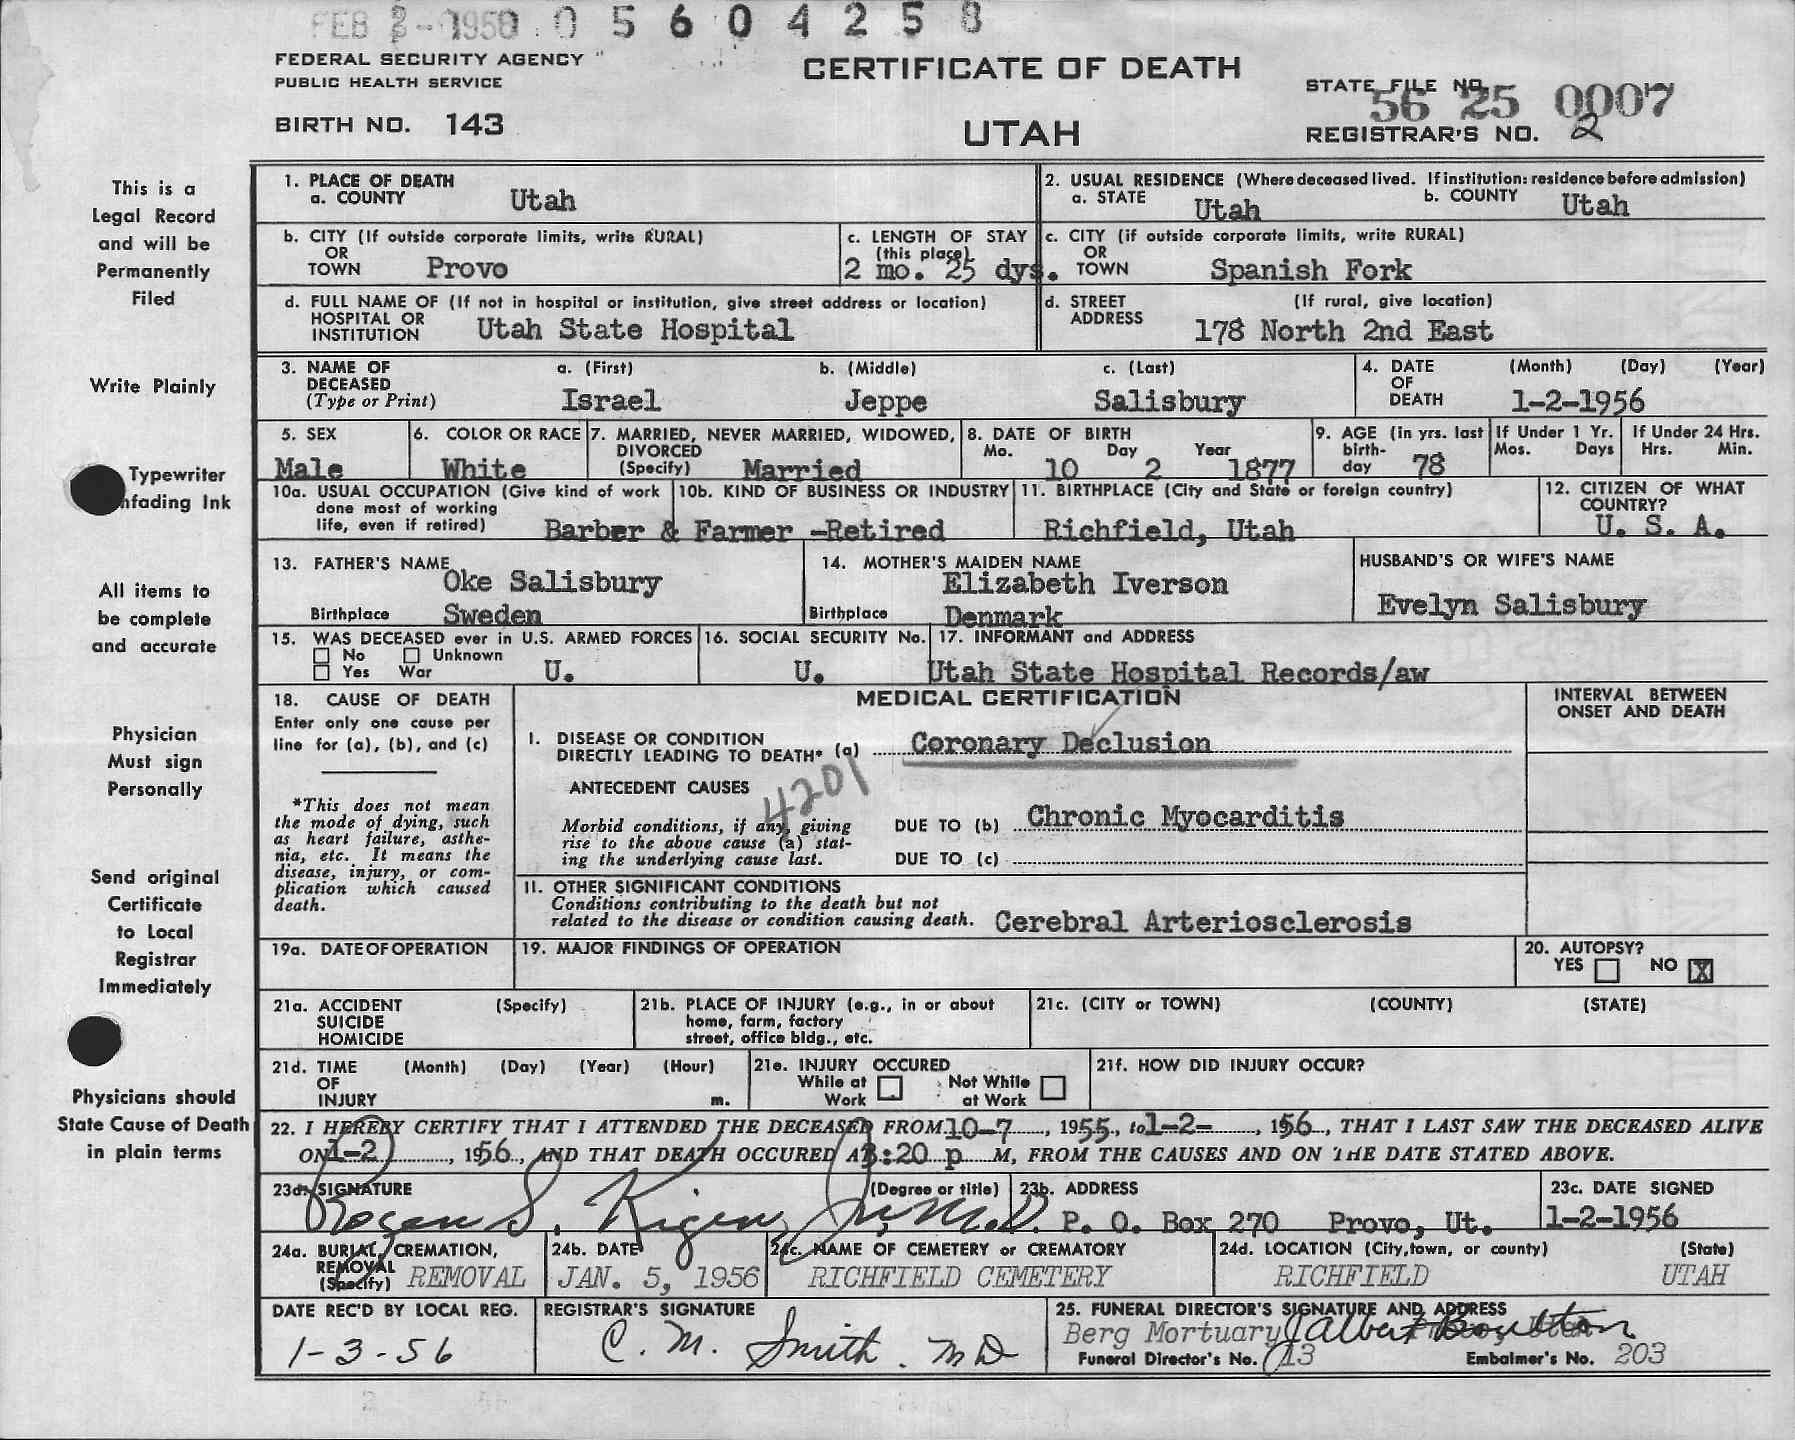 FEB 2 - 1956 0 5 6 0 4 2 5 8
FEDERAL SECURITY AGENCY
PUBLIC HEALTH SERVICE
CERTIFICATE OF DEATH
STATE FILE NO. 56 25 0007
BIRTH NO. 143
UTAH
REGISTRAR'S NO. 2
This is a
Legal Record
and will be
Permanently
Filed
Write Plainly
Typewriter
nfading Ink
All items to
be complete
and accurate
Physician
Must sign
Personally
Send original
Certificate
to Local
Registrar
Immediately
Physicians should
State Cause of Death
in plain terms
1. PLACE OF DEATH
a. COUNTY Utah
2. USUAL RESIDENCE (Where deceased lived. If institution: residence before admission)
a. STATE Utah b. COUNTY Utah
b. CITY (If outside corporate limits, write RURAL)
OR
TOWN Provo
c. LENGTH OF STAY
(this place)
2 mo. 25 dys.
c. CITY (if outside corporate limits, write RURAL)
OR
TOWN Spanish Fork
d. FULL NAME OF (If not in hospital or institution, give street address or location)
HOSPITAL OR
INSTITUTION Utah State Hospital
d. STREET (If rural, give location)
ADDRESS
178 North 2nd East
3. NAME OF a. (First) b. (Middle) c. (Last)
DECEASED
(Type or Print) Israel Jeppe Salisbury
4. DATE (Month) (Day) (Year)
OF
DEATH 1-2-1956
5. SEX
Male
6. COLOR OR RACE
White
7. MARRIED, NEVER MARRIED, WIDOWED,
DIVORCED
(Specify) Married
8. DATE OF BIRTH
Mo. Day Year
10 2 1877
9. AGE (in yrs. last
birth-
day 78
If Under 1 Yr.
Mos. Days
If Under 24 Hrs.
Hrs. Min.
10a. USUAL OCCUPATION (Give kind of work
done most of working
life, even if retired)
10b. KIND OF BUSINESS OR INDUSTRY
Barber & Farmer -Retired
11. BIRTHPLACE (City and State or foreign country)
Richfield, Utah
12. CITIZEN OF WHAT
COUNTRY?
U. S. A.
13. FATHER'S NAME
Oke Salisbury
Birthplace Sweden
14. MOTHER'S MAIDEN NAME
Elizabeth Iverson
Birthplace Denmark
HUSBAND'S OR WIFE'S NAME
Evelyn Salisbury
15. WAS DECEASED ever in U.S. ARMED FORCES
No Unknown
Yes War U.
16. SOCIAL SECURITY No.
U.
17. INFORMANT and ADDRESS
Utah State Hospital Records/aw
18. CAUSE OF DEATH
Enter only one cause per
line for (a), (b), and (c)
*This does not mean
the mode of dying, such
as heart failure, asthe-
nia, etc. It means the
disease, injury, or com-
plication which caused
death.
MEDICAL CERTIFICATION
INTERVAL BETWEEN
ONSET AND DEATH
I. DISEASE OR CONDITION
DIRECTLY LEADING TO DEATH* (a) Coronary Declusion
4201
ANTECEDENT CAUSES
Morbid conditions, if any, giving
rise to the above cause (a) stat-
ing the underlying cause last.
DUE TO (b) Chronic Myocarditis
DUE TO (c)
II. OTHER SIGNIFICANT CONDITIONS
Conditions contributing to the death but not
related to the disease or condition causing death. Cerebral Arteriosclerosis
19a. DATE OF OPERATION
19. MAJOR FINDINGS OF OPERATION
20. AUTOPSY?
YES NO X
21a. ACCIDENT (Specify)
SUICIDE
HOMICIDE
21b. PLACE OF INJURY (e.g., in or about
home, farm, factory
street, office bldg., etc.
21c. (CITY or TOWN) (COUNTY) (STATE)
21d. TIME (Month) (Day) (Year) (Hour)
OF
INJURY m.
21e. INJURY OCCURED
While at Work
Not While at Work
21f. HOW DID INJURY OCCUR?
22. I HEREBY CERTIFY THAT I ATTENDED THE DECEASED FROM 10-7, 1955, to 1-2-, 1956, THAT I LAST SAW THE DECEASED ALIVE
ON 1-2, 1956, AND THAT DEATH OCCURED AT 3:20 p M, FROM THE CAUSES AND ON THE DATE STATED ABOVE.
23a. SIGNATURE (Degree or title)
S. Jr, M.D.
23b. ADDRESS
P. O. Box 270 Provo, Ut.
23c. DATE SIGNED
1-2-1956
24a. BURIAL, CREMATION,
REMOVAL
(Specify) REMOVAL
24b. DATE
JAN. 5, 1956
24c. NAME OF CEMETERY or CREMATORY
RICHFIELD CEMETERY
24d. LOCATION (City, town, or county) (State)
RICHFIELD UTAH
DATE REC'D BY LOCAL REG.
1-3-56
REGISTRAR'S SIGNATURE
C. M. Smith. MD
25. FUNERAL DIRECTOR'S SIGNATURE AND ADDRESS
Berg Mortuary Provo, Utah
Funeral Director's No. 13 Embalmer's No. 203